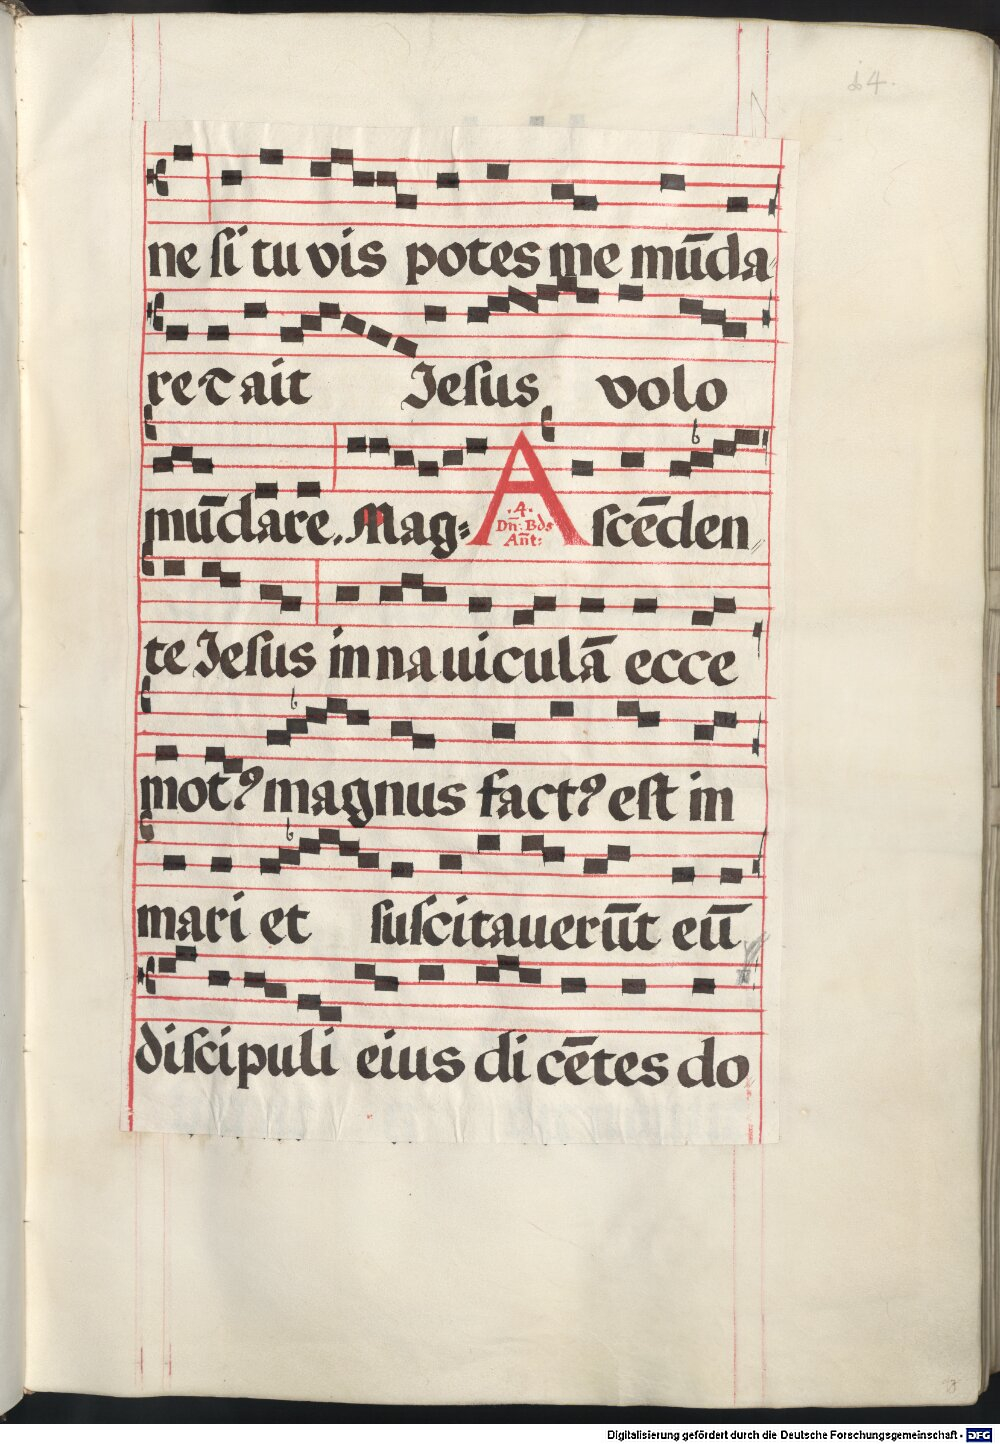 64.
ne si tu vis potes me mūda
re ⁊ ait Jesus volo
mūdare. Mag: Ascēden
.4. Dn̄: Bds Añt:
te Jesus in nauiculā ecce
motꝰ magnus factꝰ est in
mari et suscitauerūt eū
discipuli eius dicētes do
Digitalisierung gefördert durch die Deutsche Forschungsgemeinschaft - DFG